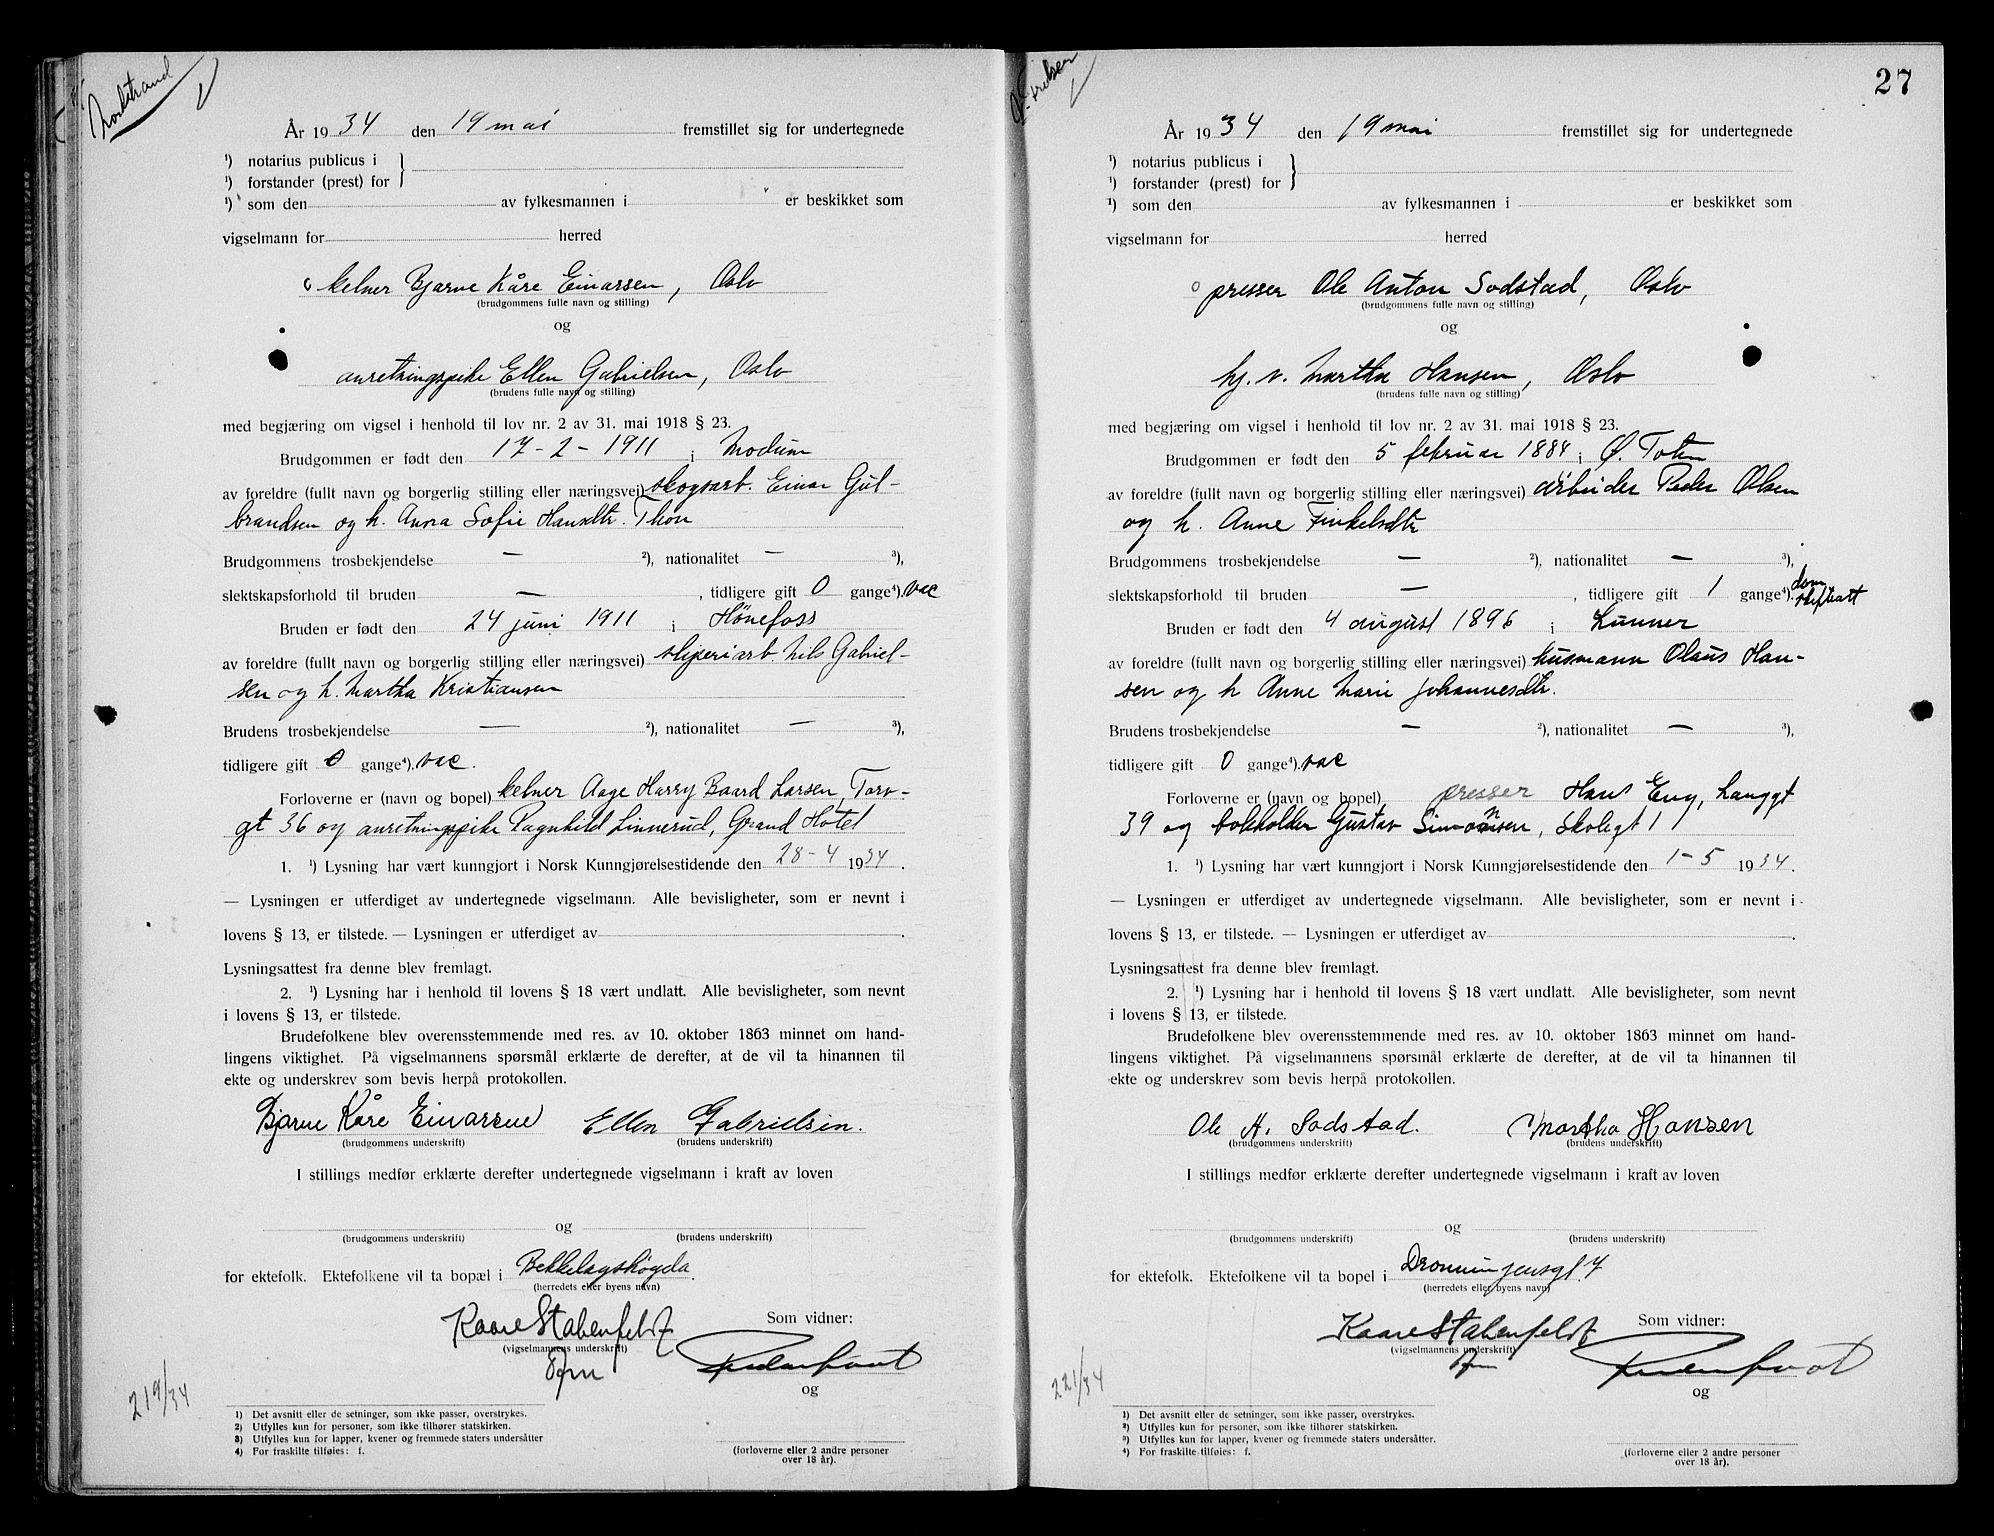 Nordstrand
År 1934 den 19 mai fremstillet sig for undertegnede
¹) notarius publicus i
¹) forstander (prest) for
¹) som den av fylkesmannen i er beskikket som
vigselmann for herred
kelner Bjarne Kåre Einarsen, Oslo
(brudgommens fulle navn og stilling)
og
anretningspike Ellen Gabrielsen, Oslo
(brudens fulle navn og stilling)
med begjæring om vigsel i henhold til lov nr. 2 av 31. mai 1918 § 23.
Brudgommen er født den 17-2-1911 i Modum
av foreldre (fullt navn og borgerlig stilling eller næringsvei) skogsarb. Einar Gul-
brandsen og h. Anna Sofie Hansdtr. Thon
Brudgommens trosbekjendelse — ²), nationalitet — ³),
slektskapsforhold til bruden — , tidligere gift 0 gange⁴). vac
Bruden er født den 24 juni 1911 i Hønefoss
av foreldre (fullt navn og borgerlig stilling eller næringsvei) sliperiarb. Nils Gabriel-
sen og h. Martha Kristiansen
Brudens trosbekjendelse — ²), nationalitet — ³),
tidligere gift 0 gange⁴). vac.
Forloverne er (navn og bopel) kelner Aage Harry Baard Larsen, Torv-
gt 36 og anretningspike Ragnhild Linnerud, Grand Hotel
1. ¹) Lysning har vært kunngjort i Norsk Kunngjørelsestidende den 28-4 1934.
— Lysningen er utferdiget av undertegnede vigselmann. Alle bevisligheter, som er nevnt i
lovens § 13, er tilstede. — Lysningen er utferdiget av .
Lysningsattest fra denne blev fremlagt.
2. ¹) Lysning har i henhold til lovens § 18 vært undlatt. Alle bevisligheter, som nevnt
i lovens § 13, er tilstede.
Brudefolkene blev overensstemmende med res. av 10. oktober 1863 minnet om hand-
lingens viktighet. På vigselmannens spørsmål erklærte de derefter, at de vil ta hinannen til
ekte og underskrev som bevis herpå protokollen.
Bjarne Kåre Einarsen Ellen Gabrielsen.
(brudgommens underskrift) (brudens underskrift)
I stillings medfør erklærte derefter undertegnede vigselmann i kraft av loven
og
(brudgommens underskrift) (brudens underskrift)
for ektefolk. Ektefolkene vil ta bopæl i Bekkelagshøgda
(herredets eller byens navn)
Kaare Stabenfeldt Som vidner:
(vigselmannens underskrift)
og
219/34
1) Det avsnitt eller de setninger, som ikke passer, overstrykes.
2) Utfylles kun for personer, som ikke tilhører statskirken.
3) Utfylles kun for lapper, kvener og fremmede staters undersåtter
4) For fraskilte tilføies: f.
(forloverne eller 2 andre personer
over 18 år).
27
År 1934 den 19 mai fremstillet sig for undertegnede
¹) notarius publicus i
¹) forstander (prest) for
¹) som den av fylkesmannen i er beskikket som
vigselmann for herred
presser Ole Anton Sodstad, Oslo
(brudgommens fulle navn og stilling)
og
hj. v. Martha Hansen, Oslo
(brudens fulle navn og stilling)
med begjæring om vigsel i henhold til lov nr. 2 av 31. mai 1918 § 23.
Brudgommen er født den 5 februar 1884 i Ø. Toten
av foreldre (fullt navn og borgerlig stilling eller næringsvei) arbeider Peder Olsen
og h. Anne Finkelsdtr
Brudgommens trosbekjendelse — ²), nationalitet — ³),
slektskapsforhold til bruden — , tidligere gift 1 gange⁴). dom
skifteatt
Bruden er født den 4 august 1896 i Lunner
av foreldre (fullt navn og borgerlig stilling eller næringsvei) husmann Olaus Han-
sen og h Anne Marie Johannesdtr.
Brudens trosbekjendelse — ²), nationalitet — ³),
tidligere gift 0 gange⁴). vac
Forloverne er (navn og bopel) presser Hans Eng, Langgt
39 og bokholder Gustav Simonsen, Skolegt 1
1. ¹) Lysning har vært kunngjort i Norsk Kunngjørelsestidende den 1-5 1934.
— Lysningen er utferdiget av undertegnede vigselmann. Alle bevisligheter, som er nevnt i
lovens § 13, er tilstede. — Lysningen er utferdiget av .
Lysningsattest fra denne blev fremlagt.
2. ¹) Lysning har i henhold til lovens § 18 vært undlatt. Alle bevisligheter, som nevnt
i lovens § 13, er tilstede.
Brudefolkene blev overensstemmende med res. av 10. oktober 1863 minnet om hand-
lingens viktighet. På vigselmannens spørsmål erklærte de derefter, at de vil ta hinannen til
ekte og underskrev som bevis herpå protokollen.
Ole A. Sodstad. Martha Hansen
(brudgommens underskrift) (brudens underskrift)
I stillings medfør erklærte derefter undertegnede vigselmann i kraft av loven
og
(brudgommens underskrift) (brudens underskrift)
for ektefolk. Ektefolkene vil ta bopel i Dronningensgt. 7
(herredets eller byens navn)
Kaare Stabenfeldt Som vidner:
(vigselmannens underskrift)
og
221/34
¹) Det avsnitt eller de setninger, som ikke passer, overstrykes.
²) Utfylles kun for personer, som ikke tilhører statskirken.
³) Utfylles kun for lapper, kvener og fremmede staters undersåtter.
⁴) For fraskilte tilføies: f.
(forloverne eller 2 andre personer
over 18 år).